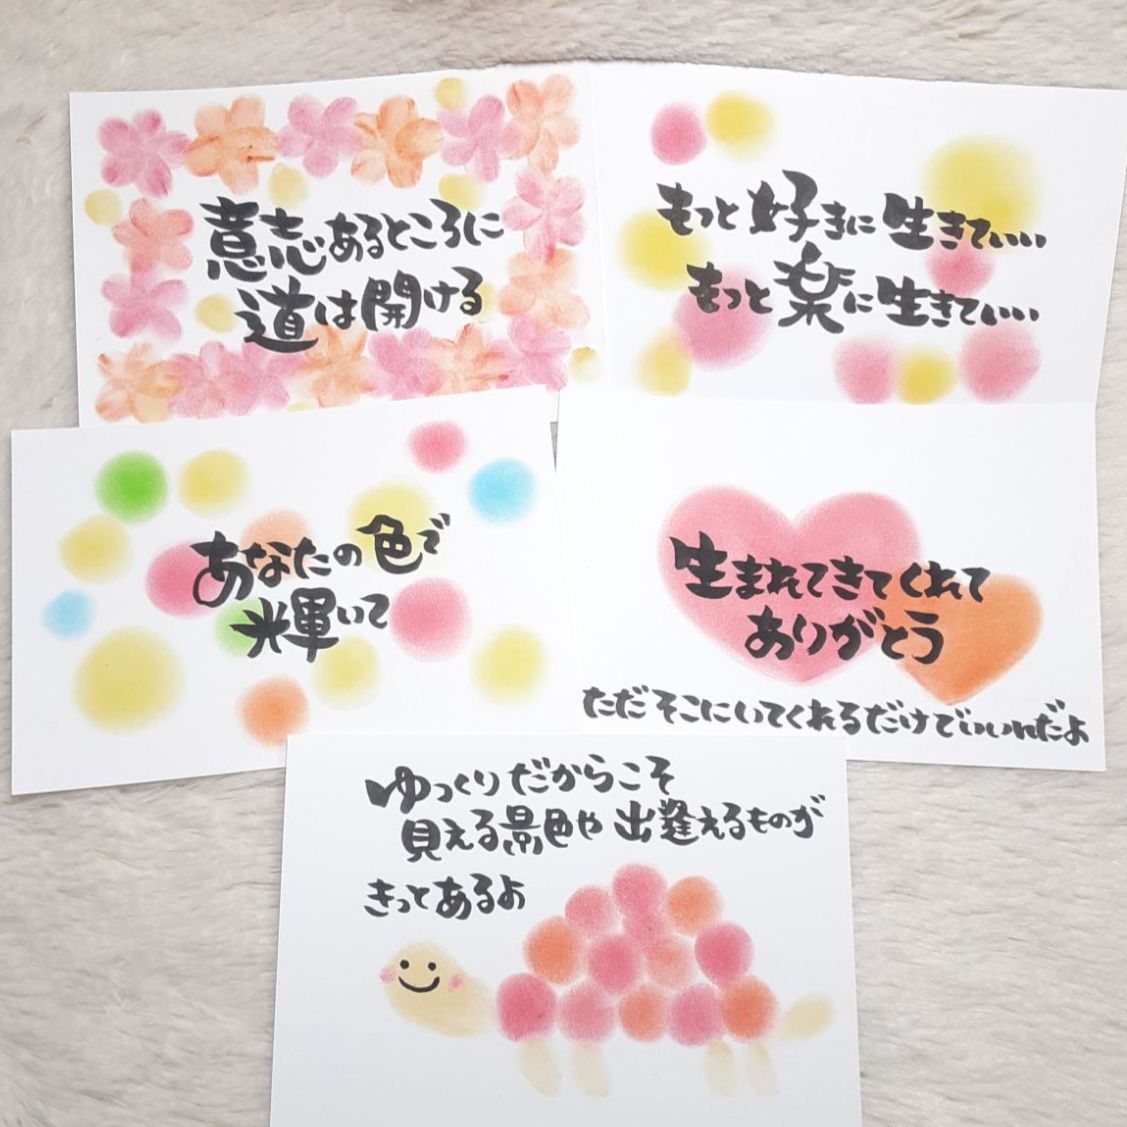 意志あるところに
道は開ける
もっと好きに生きていい
もっと楽に生きていい
あなたの色で
輝いて
生まれてきてくれて
ありがとう
ただそこにいてくれるだけでいいんだよ
ゆっくりだからこそ
見える景色や出逢えるものが
きっとあるよ